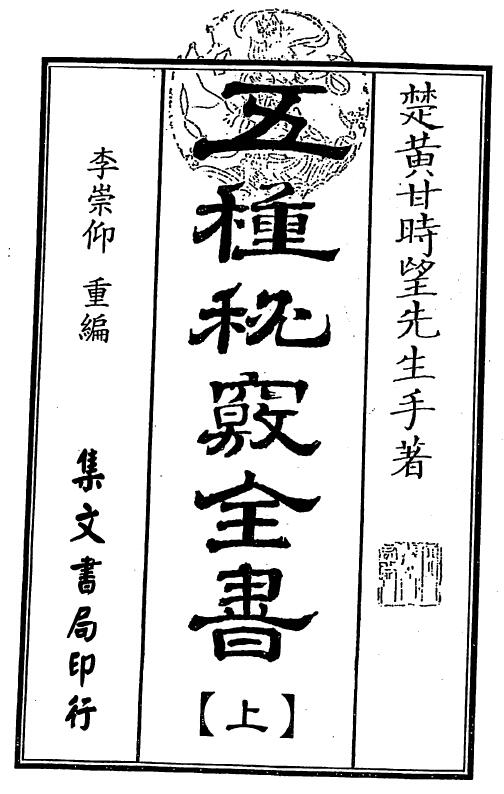 楚黃甘時望先生手著
五種秘竅全書
【上】
李崇仰 重編
集文書局印行